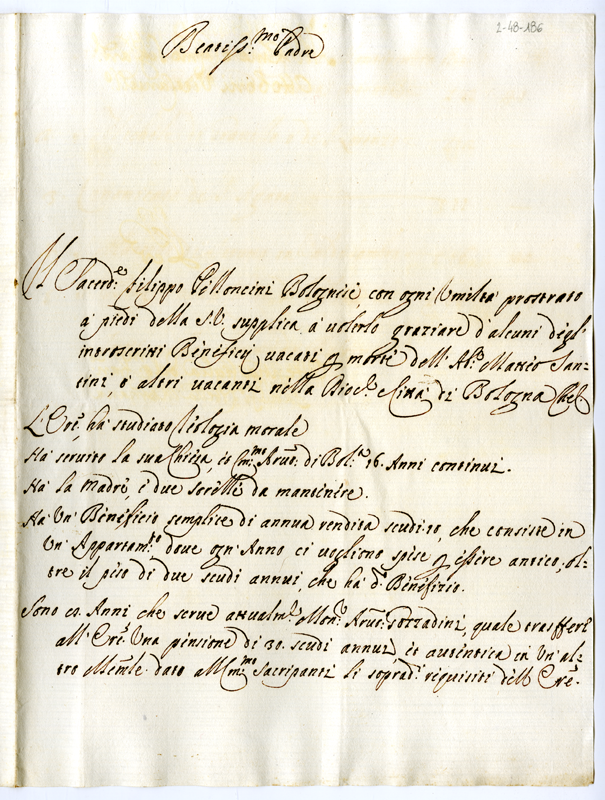 2-48-186
Beatiss:mo Padre
Il Sacerd:e Filippo Pelloncini Bolognese, con ogni Umiltà prostrato
a' piedi della S.V. supplica a' volerlo graziare d'alcuni degl'
introscritti Benefícij vacati p morte dell' Ab:e Matteo San=
tini, o' altri vacanti nella Dioc:, e Città di Bologna
L' Ore, ha studiato Teologia morale
Ha servito la sua Chiesa, et Em:mo Arciv: di Bol:a 16. Anni continui.
Ha la Madre, e due sorelle da mantenere.
Ha Un' Beneficio semplice di annua rendita scudi 10, che consiste in
Un' Appartam:to dove ogn' Anno ci vogliono spese p essere antico, ol=
tre il peso di due scudi annui, che ha d:o Benefizio.
Sono Anni che serve attualm:e Mon:r Gozzadini, quale trasferì
all' Ore Una pensione di 30. scudi annui, et autentica in Un' al=
tro Memle dato all' Em:mo Sacripanti li soprad:i requisiti dell' Ore.